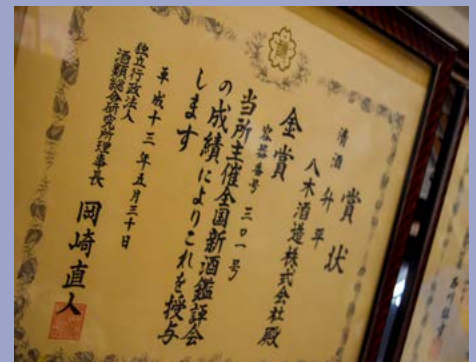 賞状
清酒 升平
八木酒造株式会社殿
金賞
容器番号 三〇一号
当所主催全国新酒鑑評会
の成績によりこれを授与
します
平成十三年五月三十日
独立行政法人
酒類総合研究所理事長 岡崎直人